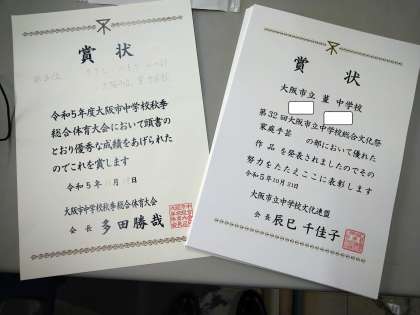 賞状
令和5年度大阪市中学校秋季
総合体育大会において頭書の
とおり優秀な成績をあげられた
のでこれを賞します
令和5年
大阪市中学校秋季総合体育大会
会長 多田勝哉
賞状
大阪市立 菫 中学校
第32回大阪市立中学校総合文化祭
家庭手芸 の部において優れた
作品を発表されましたのでその
努力をたたえここに表彰します
令和5年10月23日
大阪市立中学校文化連盟
会長 辰巳千佳子